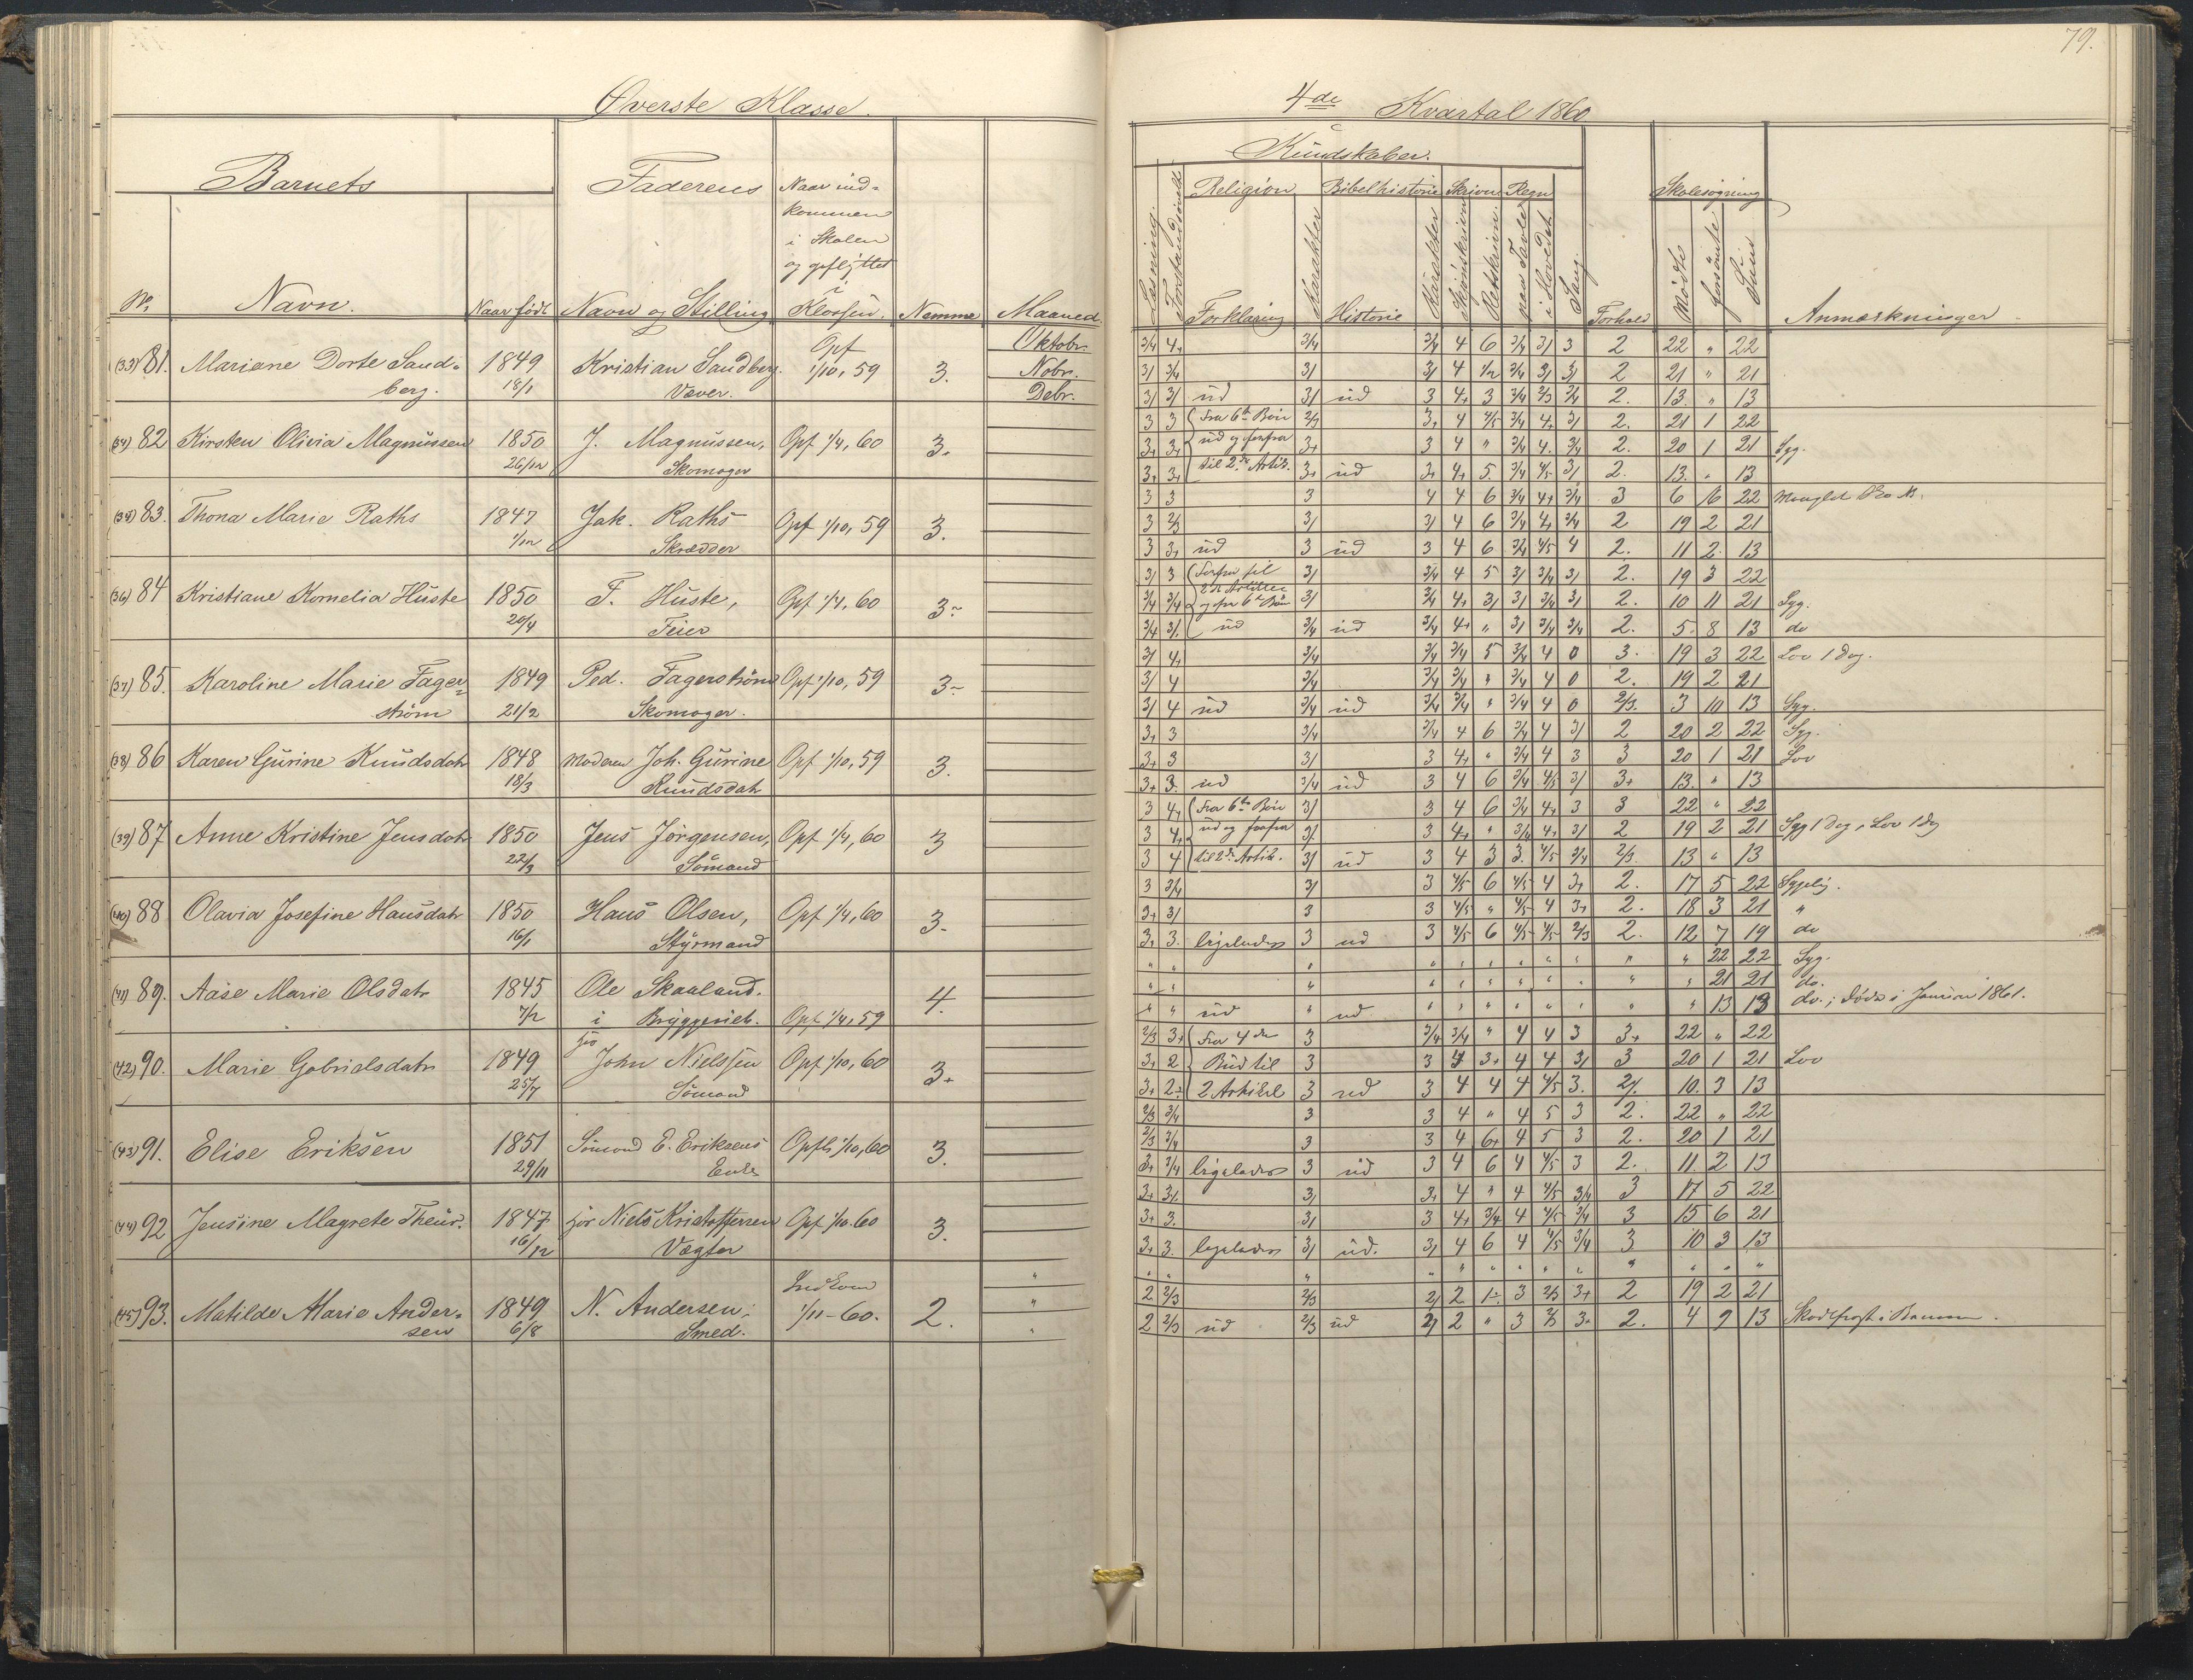 Øverste Klasse.
Barnets
Faderens
Naar ind-
kommen
i Skolen
og opflyttet
i
Klassen.
No.
Navn.
Naar født
Navn og Stilling
Nemme
Maaned
Oktobr.
Nobr.
Debr.
(33) 81. Mariane Dorte Sand- 1849 Kristian Sandberg Opf 1/10, 59 3.
berg. 18/1 Væver.
(34) 82 Kirsten Olivia Magnussen 1850 J. Magnussen, Opf 1/4, 60 3.
26/12 Skomager
(35) 83. Thona Marie Raths 1847 Jak. Raths Opf 1/10, 59 3.
1/12 Skrædder
(36) 84 Kristiane Kornelia Huste 1850 F. Huste, Opf 1/4, 60 3-
20/4 Feier
(37) 85. Karoline Marie Fager- 1849 Ped. Fagerstrøm Opf 1/10, 59 3-
strøm 21/2 Skomager.
(38) 86 Karen Gurine Knudsdatr 1848 Moderen Joh. Gurine Opf 1/10, 59 3.
18/3 Knudsdatr
(39) 87 Anne Kristine Jensdatr 1850 Jens Jørgensen, Opf 1/4, 60 3
22/3 Sømand
(40) 88 Olavia Josefine Hansdatr 1850 Hans Olsen, Opf 1/4, 60 3-
16/1 Styrmand
(41) 89. Aase Marie Olsdatr 1845 Ole Skaaland. 4.
7/2 i Opf 1/4, 59
(42) 90. Marie Gabrielsdatr 1849 hos John Nielssen Opf 1/10, 60 3+
25/7 Sømand
(43) 91. Elise Eriksen 1851 Sømand E. Eriksens Opfl 1/10, 60 3.
29/11 Enke
(44) 92 Jensine Magrete Theus. 1847 hos Niels Kristoffersen Opf 1/10 60 3.
16/12 Vægter
(45) 93. Matilde Marie Ander- 1849 N. Andersen, Indkom 1/11-60. 2.
sen 6/8 Smed.
79.
4de Kvartal 1860
Kundskaber.
Læsning.
Forstandsøvelse
Religion
Forklaring
Karakter
Bibelhistorie
Historie
Karakter
Skrivn
Skjønskrivn
Retskrivn.
Regn
paa Tavle
i Hovedet
Sang.
Forhold
Skolesøgning
Mødte
forsømte
Sum
Anmærkninger
3/4 4+ 3/4 3/4 4 6 3/4 3/ 3 2 22 " 22
3/ 3/4 3/ 3/ 4 1/2 3/4 3/ 3/ 2 21 " 21
3/ 3/ ud 3/ ud 3 4+ 3 3/4 2/3 3/4 2. 13. " 13
3 3 Fra 6te Bøn 2/3 3+ 4 4/5 3/4 4+ 3/ 2. 21 1 22
3+ 3+ ud og forfra 3+ 3 4 " 3/4 4. 3/4 2. 20 1 21 Syg.
3+ 3+ til 2den Artik. 3+ ud 3+ 4+ 5. 3/4 4/5 3/ 2. 13. " 13
3 3 3 4 4 6 3/4 4+ 3/4 3 6 16 22
3 2/3 3/ 3/ 4 6 3/4 4+ 3/4 2 19 2 21
3 3+ ud 3 ud 3 4 6 3/4 4/5 4 2. 11 2 13
3/ 3 Forfra til 3/ 3/4 4 5 3/ 3/4 3/ 2. 19 3 22
3/4 3/4 2den Artikel og fra 6te Bøn 3/ 3/4 4+ 3/ 3/ 3/4 3/ 2. 10 11 21 Syg.
3/4 3/ ud 3/4 ud 3/4 4+ " 3/ 3/4 3/4 2. 5 8 13 do
3/ 4+ 3/4 3/4 3/4 5 3/4 4 0 3. 19 3 22 Lov 1 Dag.
3/ 4 3/4 3/4 3/4 " 3/4 4 0 2. 19 2 21
3/ 4 ud 3/4 ud 3/4 3/4 " 3/4 4 0 2/3. 3 10 13 Syg.
3+ 3 3/4 3/4 4 6 3/4 4 3/ 2 20 2 22 Syg.
3+ 3 3/ 3 4+ " 3/4 4 3 3 20 1 21 Lov
3+ 3. ud 3/4 ud 3 4 6 3/4 4/5 3/ 3+ 13. " 13
3 4+ Fra 6te Bøn 3/ 3 4 6 3/4 4+ 3 3 22 " 22
3 4+ ud og forfra 3/ 3 4+ " 3/4 4+ 3/ 2 19 2 21 Syg 1 Dag, Lov 1 Dag
3 4 til 2den Artik. 3/ ud 3 4 3 3. 4/5 3/4 2/3 13 " 13
3 3/4 3/ 3 4/5 6 4/5 4 3+ 2. 17 5 22 Sygelig.
3+ 3/ 3 3 4/5 " 4/5 4 3+ 2. 18 3 21 "
3+ 3. ligeledes 3 ud 3 4/5 6 4/5 4/5 2/3 2. 12 7 19 do
" " " " " " " " " " " 22 22 Syg.
" " " " " " " " " " " 21 21 do.
" " ud " ud " " " " " " " " 13 13 do.; døde i Januar 1861.
2/3 3+ Fra 4de 3 3/4 3/4 " 4 4 3 3+ 22 " 22
3+ 2 Bud til 3 3 4 3+ 4 4 3/ 3 20 1 21 Lov
3+ 2. 2 Artikel 3 ud 3 4 4 4 4/5 3. 2/. 10. 3 13
2/3 3/4 3 3 4 " 4 5 3 2. 22 " 22
2/3 3/4 3 3 4 6+ 4 5 3 2. 20 1 21
3+ 3/4 ligeledes 3 ud 3 4 6 4 4/5 3 2. 11. 2 13
3+ 3/ 3/ 3+ 4 " 4 4/5 3/4 3 17 5 22
3+ 3. 3/ 3 4+ 3/4 4 4/5 3/4 3 15 6 21
3+ 3. ligeledes 3/ ud. 3/ 4 6 4 4/5 3/4 3 10 3 13
" " " " " " " " " " " " "
2 2/3 2/3 2/ 2 1- 3 2/3 3+ 2 19 2 21
2 2/3 ud 2/3 ud 2/ 2 " 3 2/3 3. 2. 4 9 13